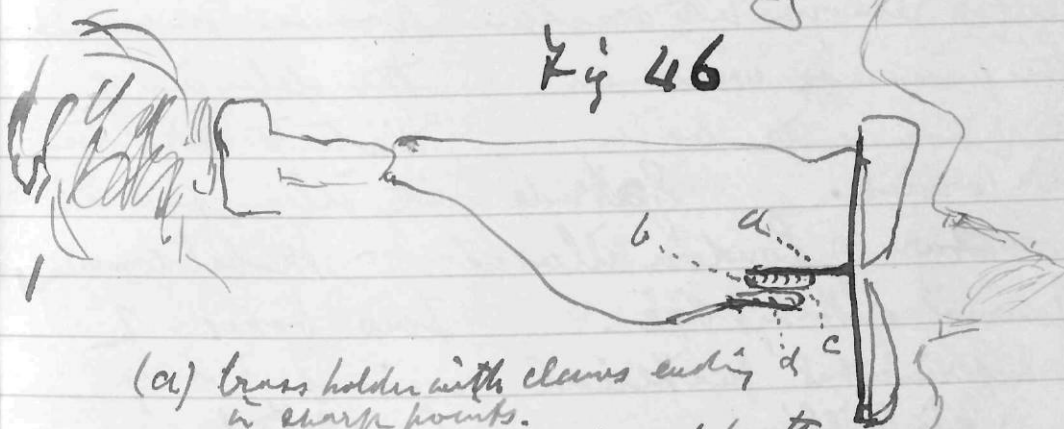 Fig 46
b a
c
d
(a) brass holder with claws ending
in sharp points.